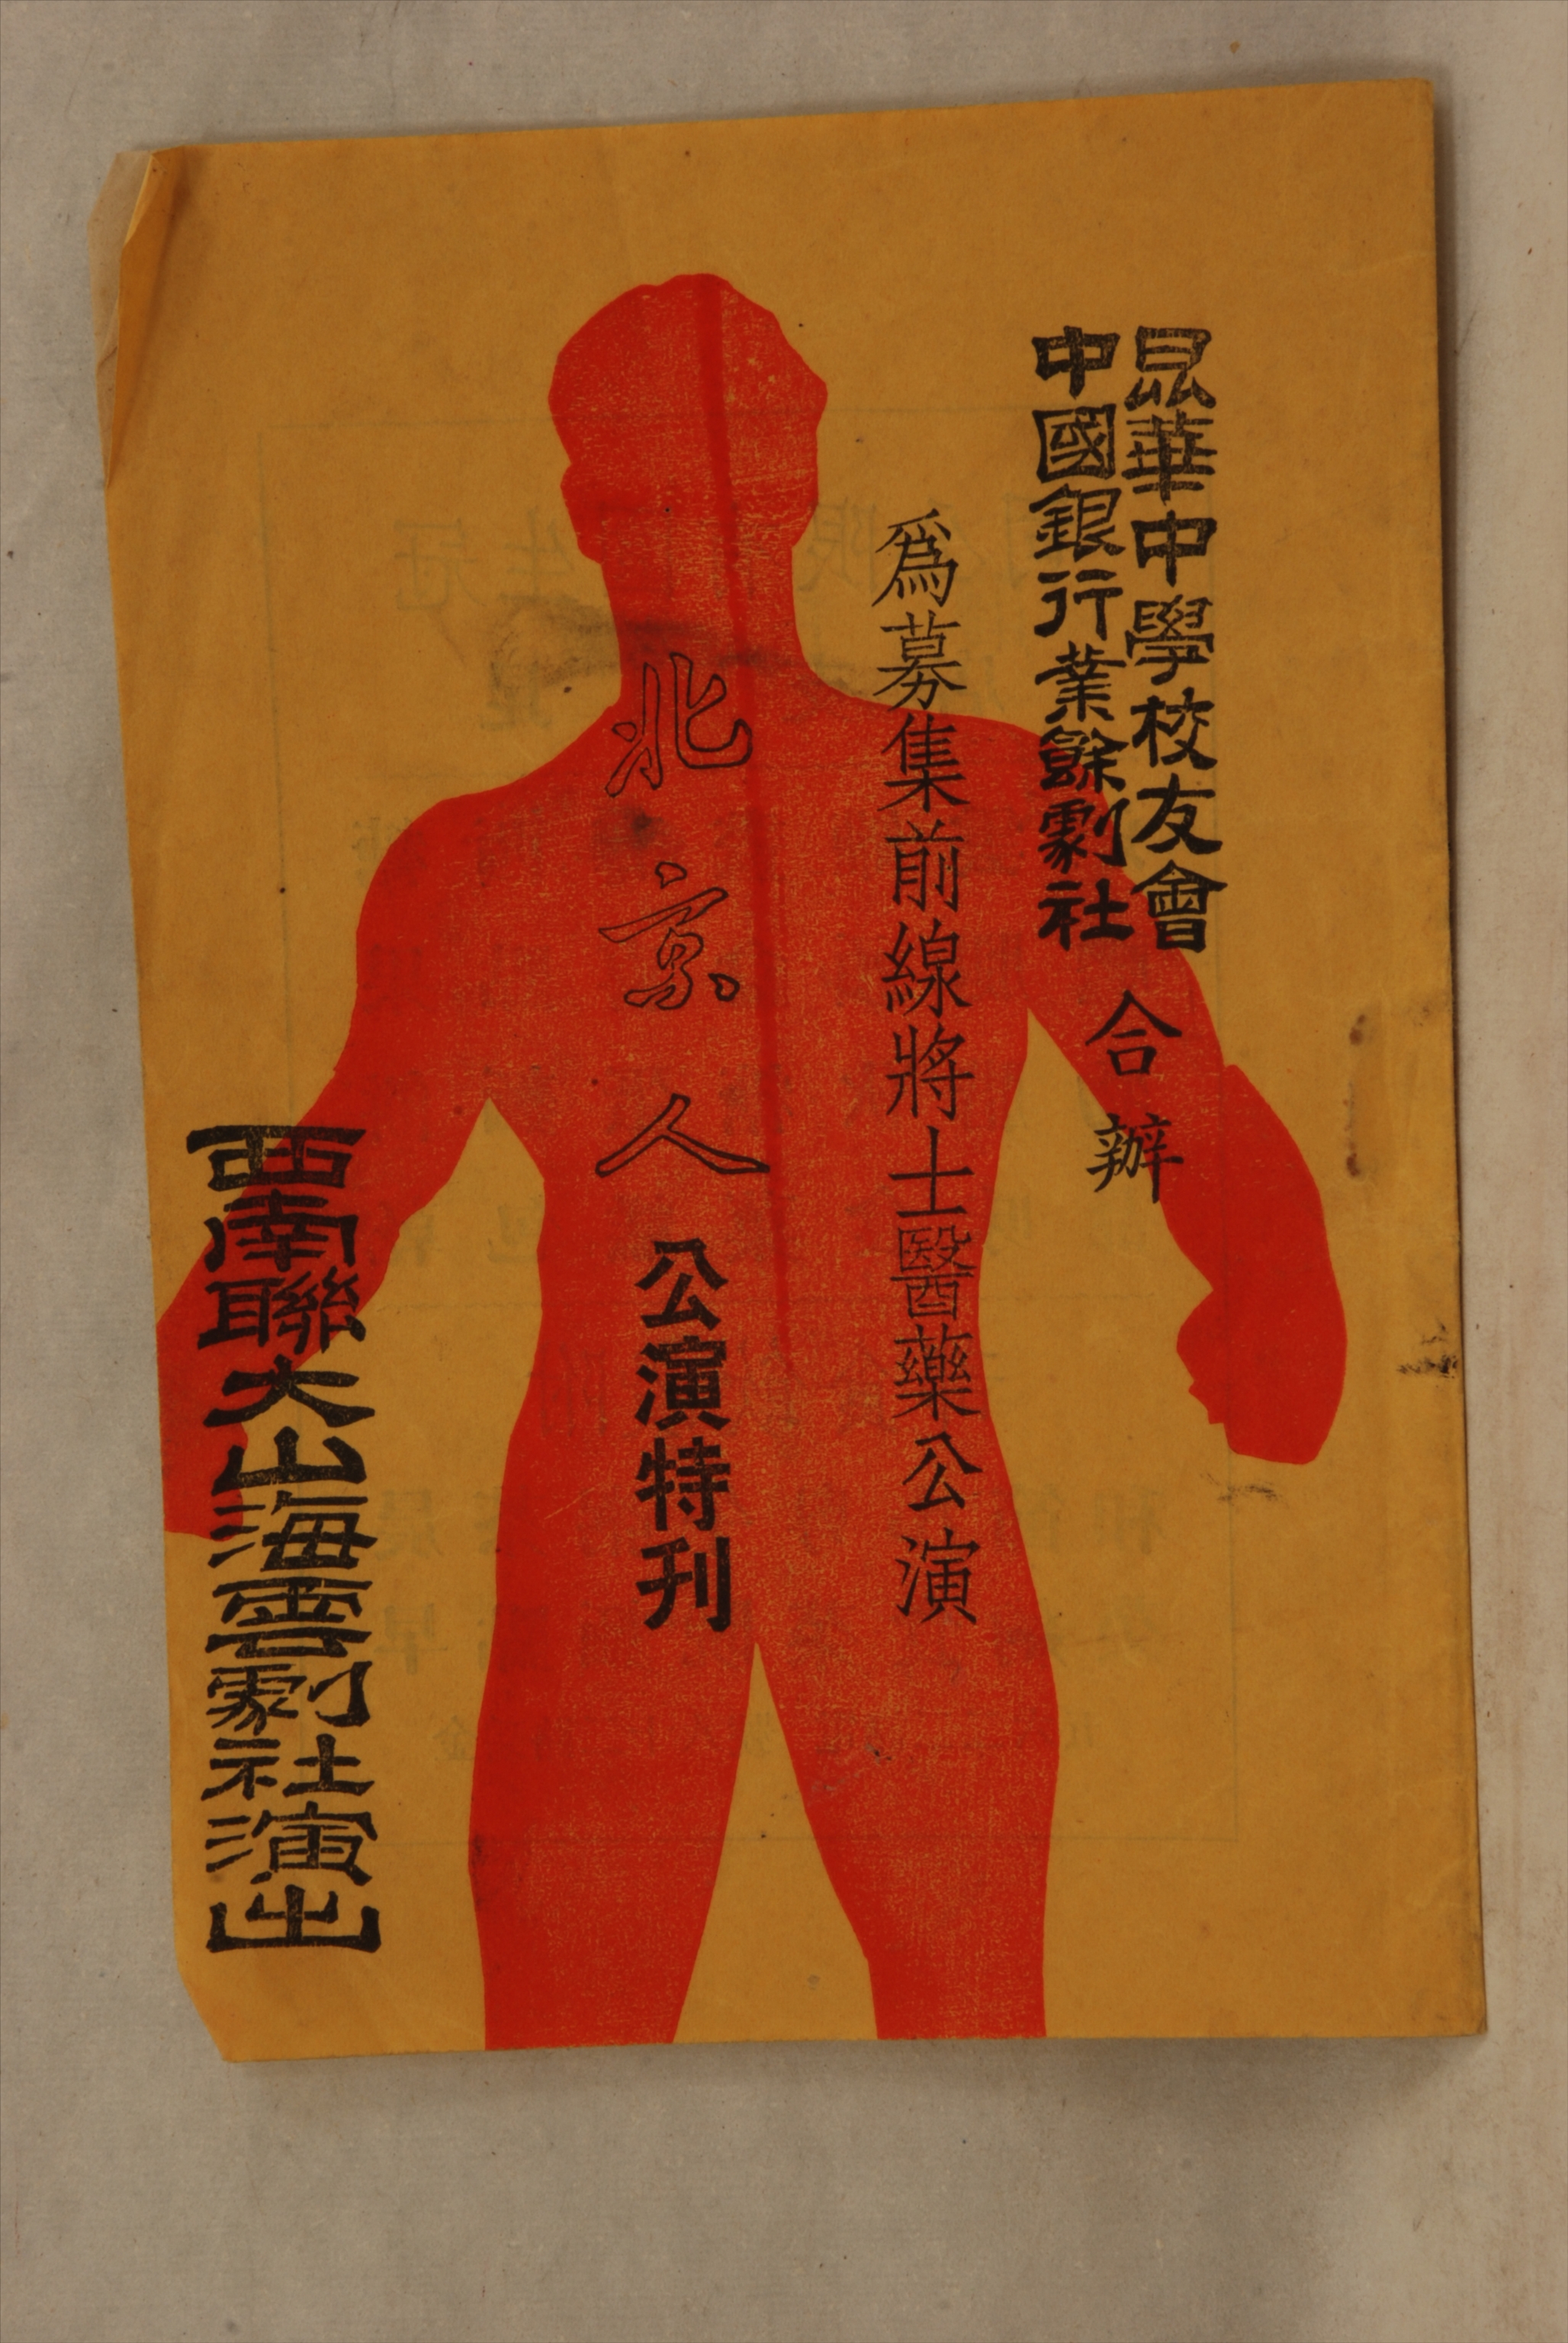 昆華中學校友會
中國銀行業餘劇社
合辦
爲募集前線將士醫藥公演
北京人
公演特刊
西南聯大山海雲劇社演出